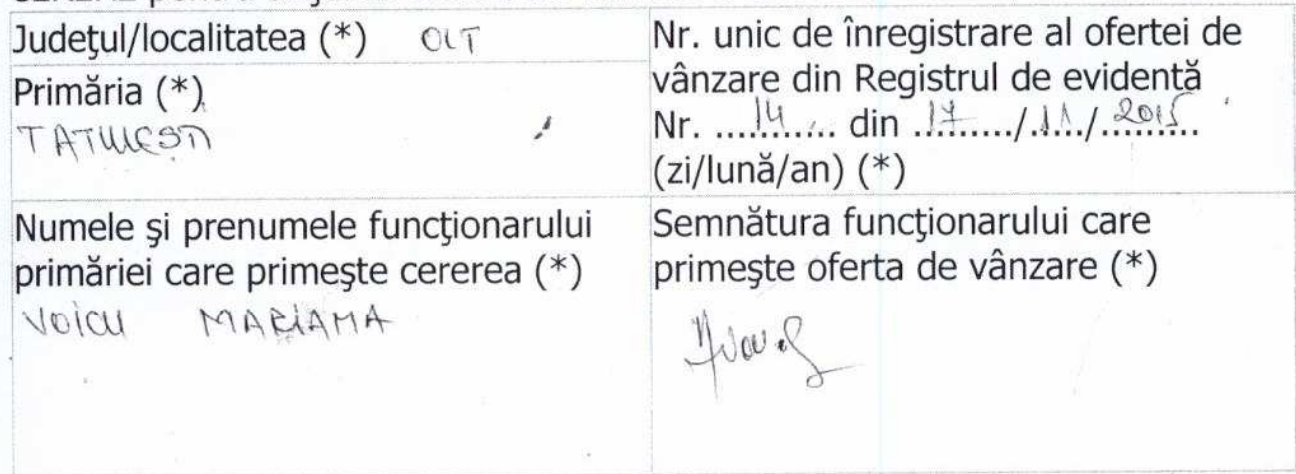 Județul/localitatea (*) OLT
Primăria (*)
TATULESTI
Nr. unic de înregistrare al ofertei de
vânzare din Registrul de evidentă
Nr. ....14....... din .17......./.11.../.2015........
(zi/lună/an) (*)
Numele şi prenumele funcţionarului
primăriei care primeşte cererea (*)
VOICU MARIANA
Semnătura funcţionarului care
primeşte oferta de vânzare (*)